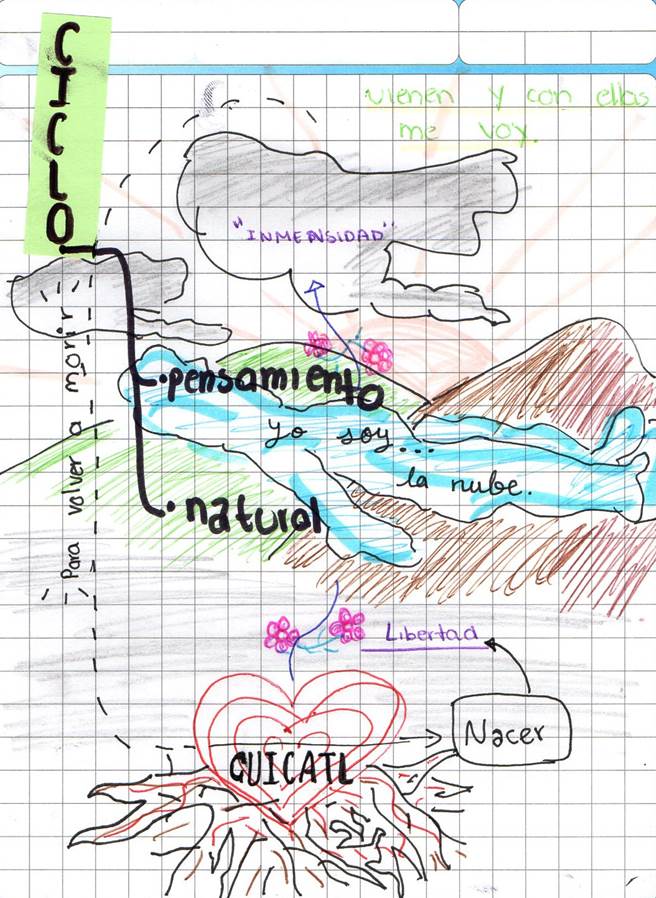 CICLO
vienen y con ellas
me voy.
"INMENSIDAD"
Para volver a morir
pensamiento
yo soy...
la nube.
natural
Libertad
Nacer
CUICATL